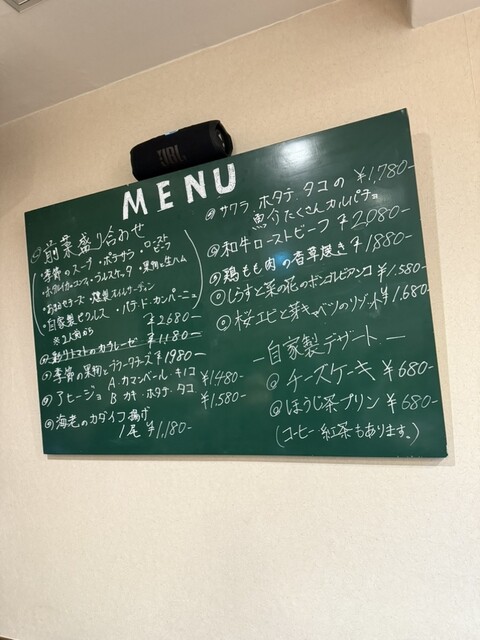 JBL
MENU
◎前菜盛り合わせ
・季節のスープ・ポテサラ・ロースト
ビーフ
・ホタルイカの
・生ハム
・おまかせチーズ・燻製オイルサーディン
・自家製ピクルス・パテ・ド・カンパーニュ
※2人前から ¥2680-
◎彩りトマトのカプレーゼ ¥1180-
◎季節の果物とブラータチーズ ¥1980-
◎アヒージョ A.カマンベール・キノコ ¥1480-
B カキ・ホタテ・タコ ¥1,580-
◎海老のカダイフ揚げ
1尾 ¥1,180-
◎サワラ ホタテ.タコの ¥1,780-
魚介たくさんカルパチョ
◎和牛ローストビーフ ¥2,080-
◎鶏もも肉の香草焼き ¥1880-
◎しらすと菜の花のボンゴレビアンコ ¥1.580-
◎桜エビと春キャベツのリゾット ¥1,680-
―自家製デザート―
◎チーズケーキ ¥680-
◎ほうじ茶プリン ¥680-
(コーヒー紅茶もあります。)